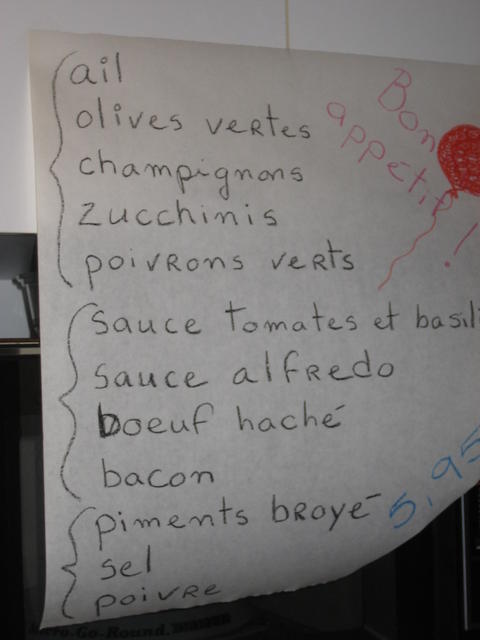 ail
olives vertes
champignons
zucchinis
poivrons verts
sauce tomates et basil
sauce alfredo
boeuf haché
bacon
piments broyé
sel
poivre
Bon
appétit!
5,95
Go-Round